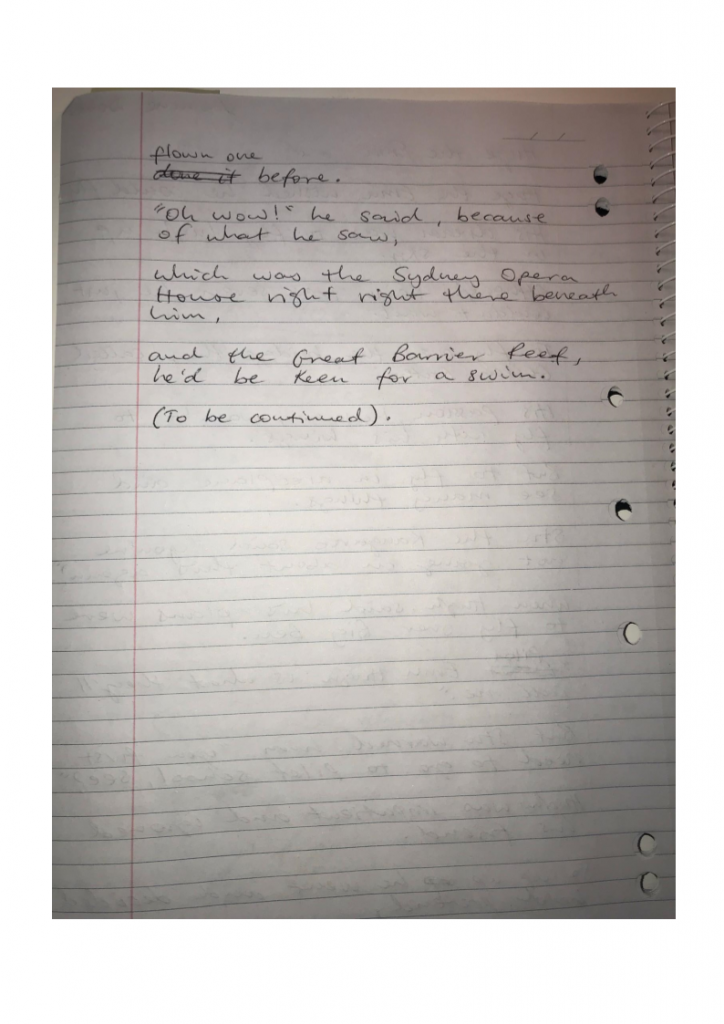 flown one
done it before.
"Oh wow!" he said, because
of what he saw,
which was the Sydney Opera
House right right there beneath
him,
and the Great Barrier Reef,
he'd be keen for a swim.
(To be continued).